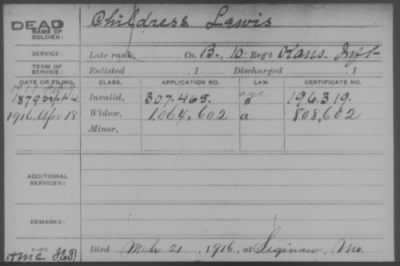 DEAD
NAME OF SOLDIER: Childress Lewis
SERVICE: Late rank, Co. B, 10 Reg't Kans. Inf.
TERM OF SERVICE: Enlisted , 1 Discharged , 1
DATE OF FILING. CLASS. APPLICATION NO. LAW. CERTIFICATE NO.
1879 Sept 4 Invalid, 307.465. 196.319.
1916, Apr 18 Widow, 1,064,602 a 808,602
Minor,
ADDITIONAL SERVICES:
REMARKS:
Died Mch 21, 1916, at Seginaw, Mo